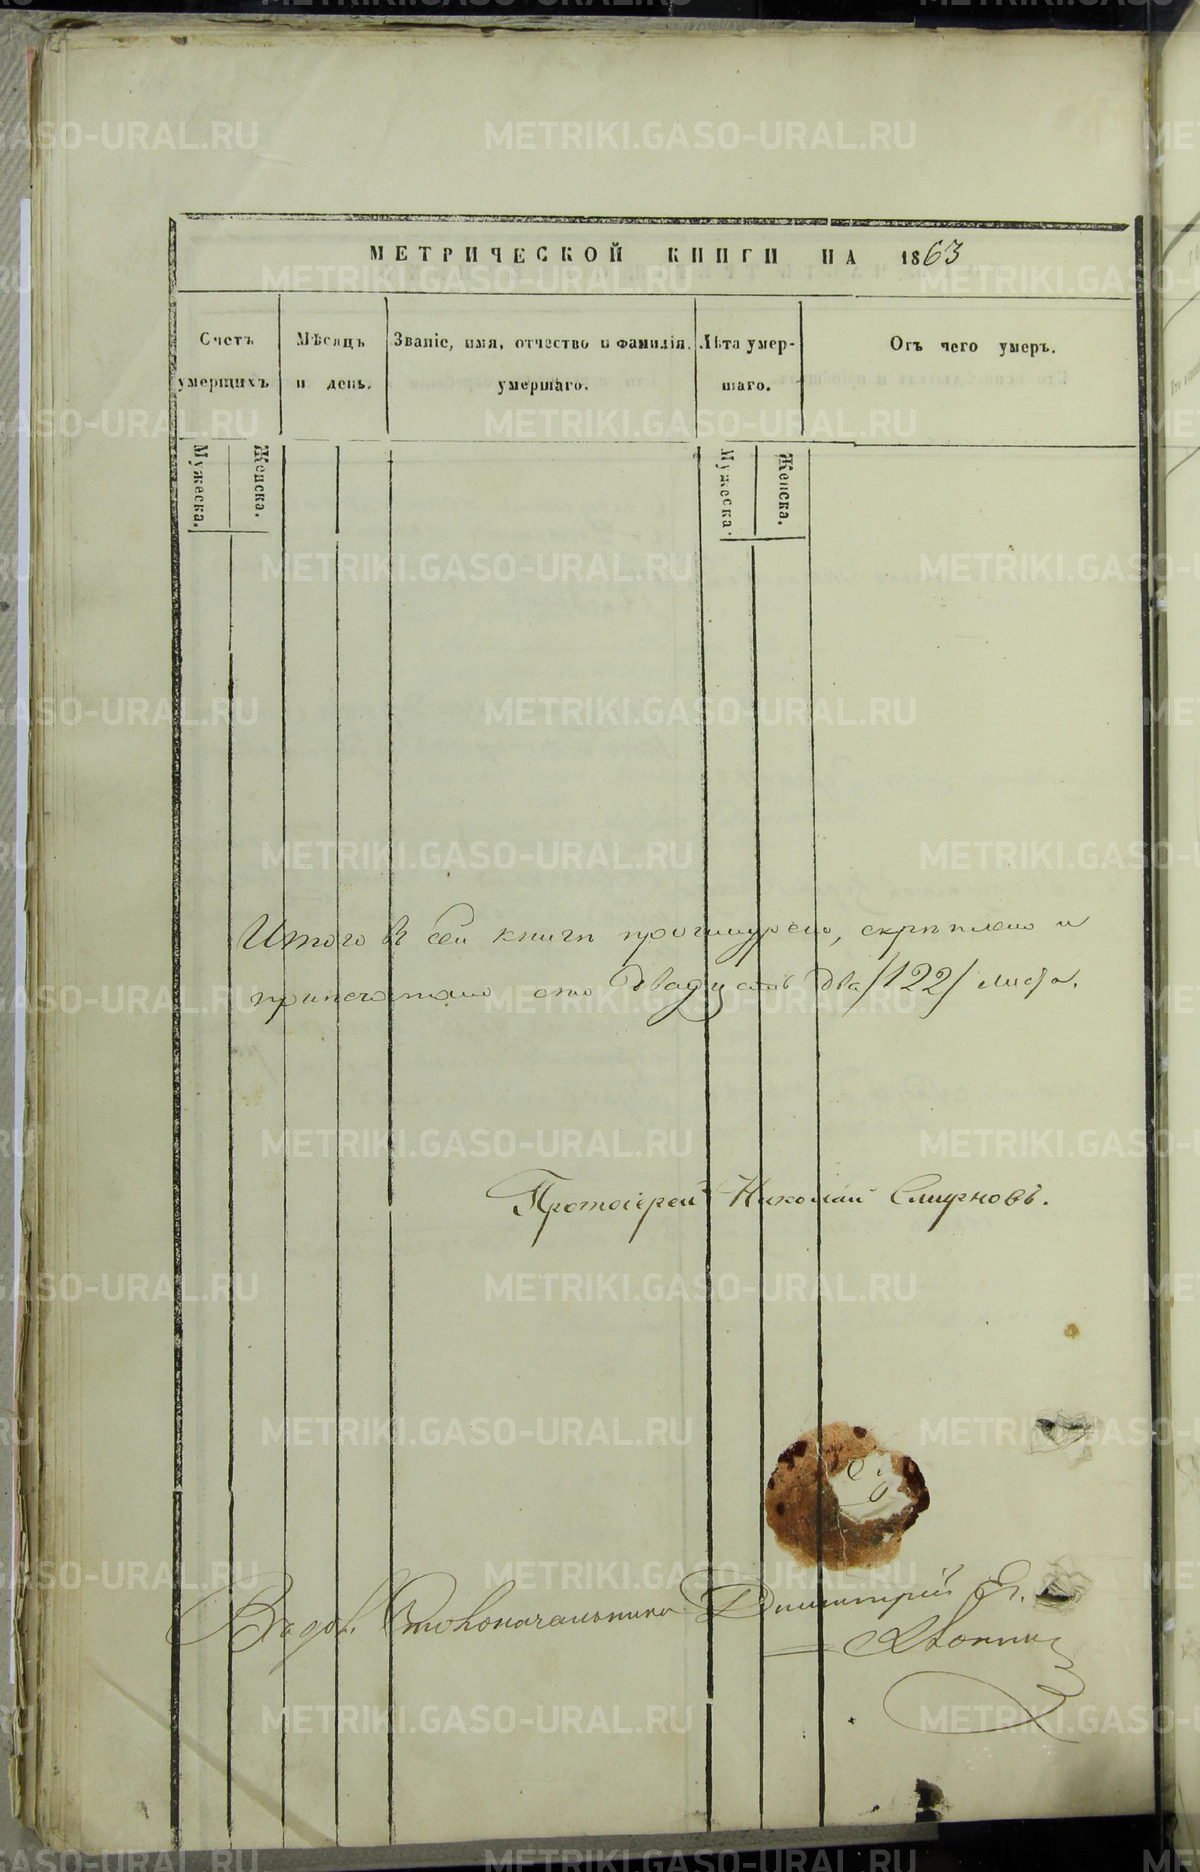 МЕТРИЧЕСКОЙ КНИГИ НА 1863
Счетъ умершихъ
Мѣсяцъ и день.
Званіе, имя, отчество и фамилія умершаго.
Лѣта умершаго.
Отъ чего умеръ.
Мужеска.
Женска.
Мужеска.
Женска.
Итого въ сей книги прошнурено, скрѣплено и
припечатано сто двадцать два /122/ листа.
Протоіерей Николай Смирновъ.
Столоначальника Димитрій
METRIKI.GASO-URAL.RU